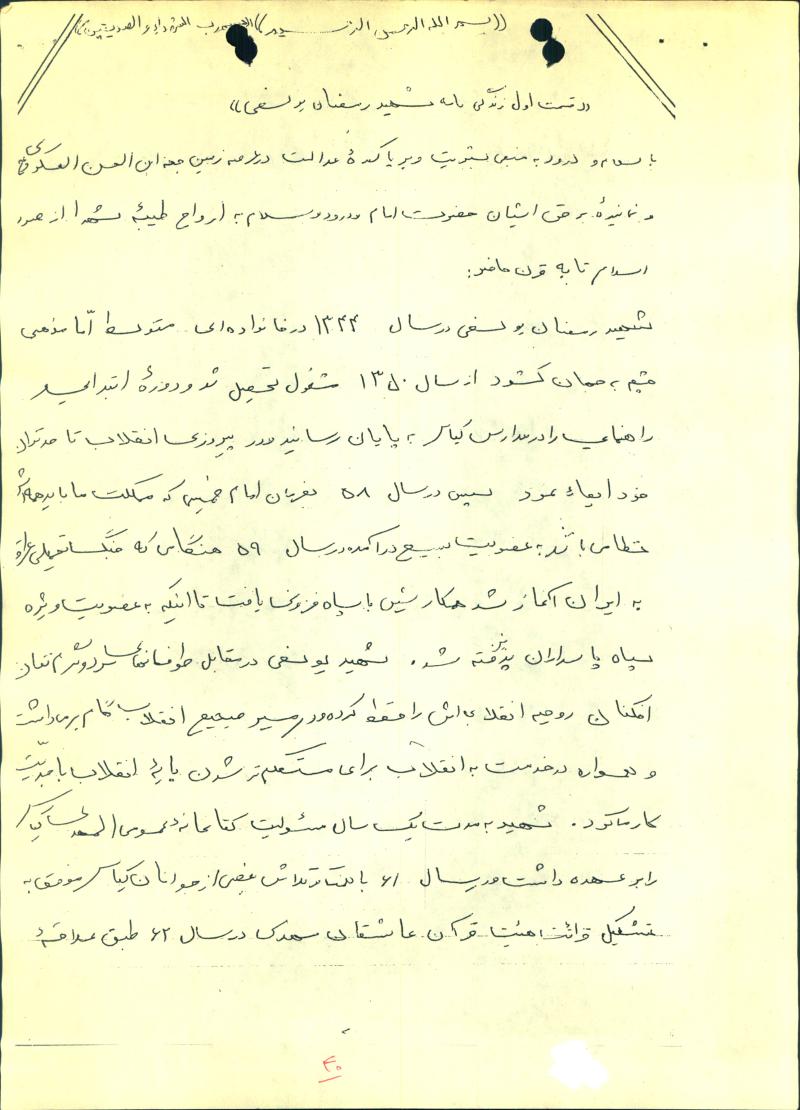 ((بسم الله الرحمن الرحیم)) ((بسم رب الشهداء و الصدیقین))
((قسمت اول زندگی نامه شهید رمضان یوسفی))
با سلام و درود به منجی بشریت و برپا کنندهٔ عدالت در عرصه زمین حجة ابن الحسن العسکری
و نمایندهٔ بر حق ایشان حضرت امام و درود و سلام به ارواح طیبهٔ شهدا از صدر
اسلام تا به قرن حاضر:
شهید رمضان یوسفی در سال ۱۳۴۴ در خانواده‌ای متوسط امّا مذهبی
چشم به جهان گشود از سال ۱۳۵۰ مشغول تحصیل شد و دورهٔ ابتدایی
راهنمایی را در مدارس کیاسر به پایان رسانید و در پیروزی انقلاب تا حد توان
خود ایفاء نمود سپس در سال ۵۸ بفرمان امام خمینی که مملکت ما باید همه‌اش
نظامی باشد به عضویت بسیج درآمده در سال ۵۹ هنگامی که جنگ تحمیلی عراق
به ایران آغاز شد همکاریش با سپاه فزونی یافت تا اینکه به عضویت ویژه
سپاه پاسداران پذیرفته شد. شهید یوسفی در مقابل طوفانهای سرد و شرم تفان
افکنان روحیه انقلابی‌اش را حفظ کرده و در مسیر صحیح انقلاب گام برمیداشت
و همواره در خدمت به انقلاب برای مستحکم‌تر شدن پایهٔ انقلاب با جدیّت
کار میکرد. شهید به مدت یک سال مسئولیت کتابخانهٔ عمومی المهدی کیاسر
را بر عهده داشت و در سال ۶۱ با تلاش بعضی از جوانان کیاسر موفق به
تشکیل قرائت هیئت قرآن عاشقان مهدی در سال ۶۲ طبق علاقهٔ
۴۰